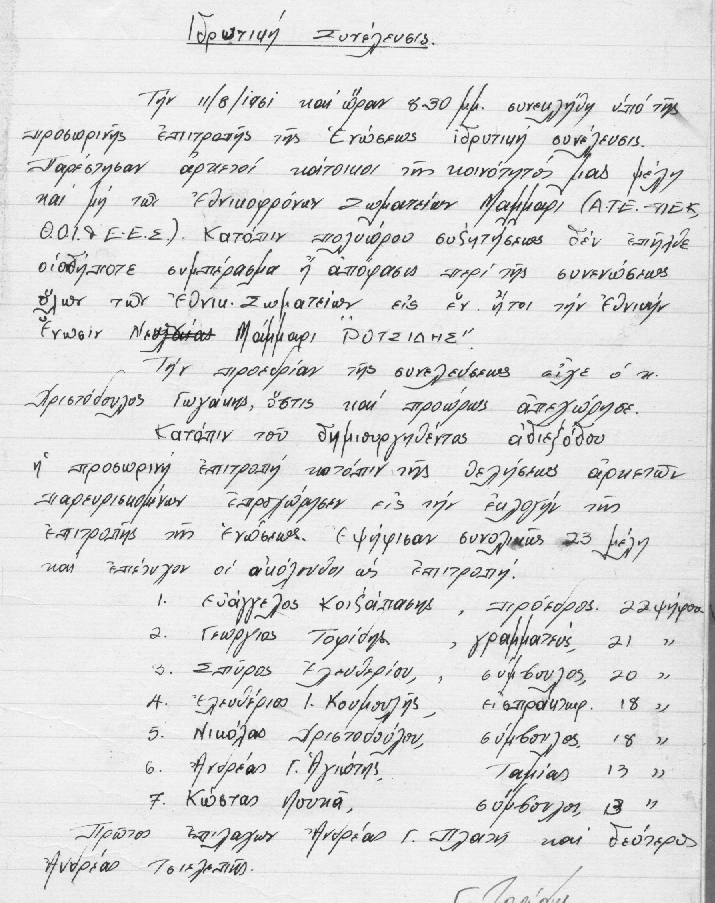 Ἱδρυτική Συνέλευσις.
Τήν 11/8/1961 καί ὥραν 8.30 μμ. συνεκλήθη ὑπό τῆς
προσωρινῆς ἐπιτροπῆς τῆς Ἑνώσεως ἱδρυτική συνέλευσις.
Παρέστησαν ἀρκετοί κάτοικοι τῆς κοινότητός μας μέλη
καί μή τῶν Ἐθνικοφρόνων Σωματείων Μάμμαρι (Α.Τ.Ε.-ΠΕΚ,
Θ.Ο.Ι. & Ε.Ε.Σ.). Κατόπιν πολυώρου συζητήσεως δέν ἐπῆλθε
οἱοδήποτε συμπέρασμα ἤ ἀπόφασις περί τῆς συνενώσεως
ὅλων τῶν Ἐθνικ. Σωματείων εἰς ἕν ἤτοι τήν Ἐθνικήν
Ἕνωσιν Μάμμαρι "ΡΟΤΣΙΔΗΣ".
Τήν προεδρίαν τῆς συνελεύσεως εἶχε ὁ κ.
Χριστόδουλος Γωγάκης, ὅστις καί προώρως ἀπεχώρησε.
Κατόπιν τοῦ δημιουργηθέντος ἀδιεξόδου
ἡ προσωρινή ἐπιτροπή κατόπιν τῆς θελήσεως ἀρκετῶν
παρευρισκομένων ἐπροχώρησεν εἰς τήν ἐκλογήν τῆς
ἐπιτροπῆς τῆς Ἑνώσεως. Ἐψήφισαν συνολικῶς 23 μέλη
καί ἐπέτυχον οἱ ἀκόλουθοι ὡς ἐπιτροπή.
1. Εὐάγγελος Κοιζάπασης, πρόεδρος. 22 ψήφοι
2. Γεώργιος Τοφίδης, γραμματεύς, 21 "
3. Σπῦρος Ἐλευθερίου, σύμβουλος, 20 "
4. Ἐλευθέριος Ι. Κουμουλῆς, εἰσπράκτωρ. 18 "
5. Νικόλας Χριστοδούλου, σύμβουλος, 18 "
6. Ἀνδρέας Γ. Ἁγιώτης, Ταμίας 13 "
7. Κώστας Λουκᾶ, σύμβουλος, 13 "
Πρῶτος ἐπιλαχών Ἀνδρέας Γ. Πλατῆ καί δεύτερος
Ἀνδρέας Τσιελεπῆς.